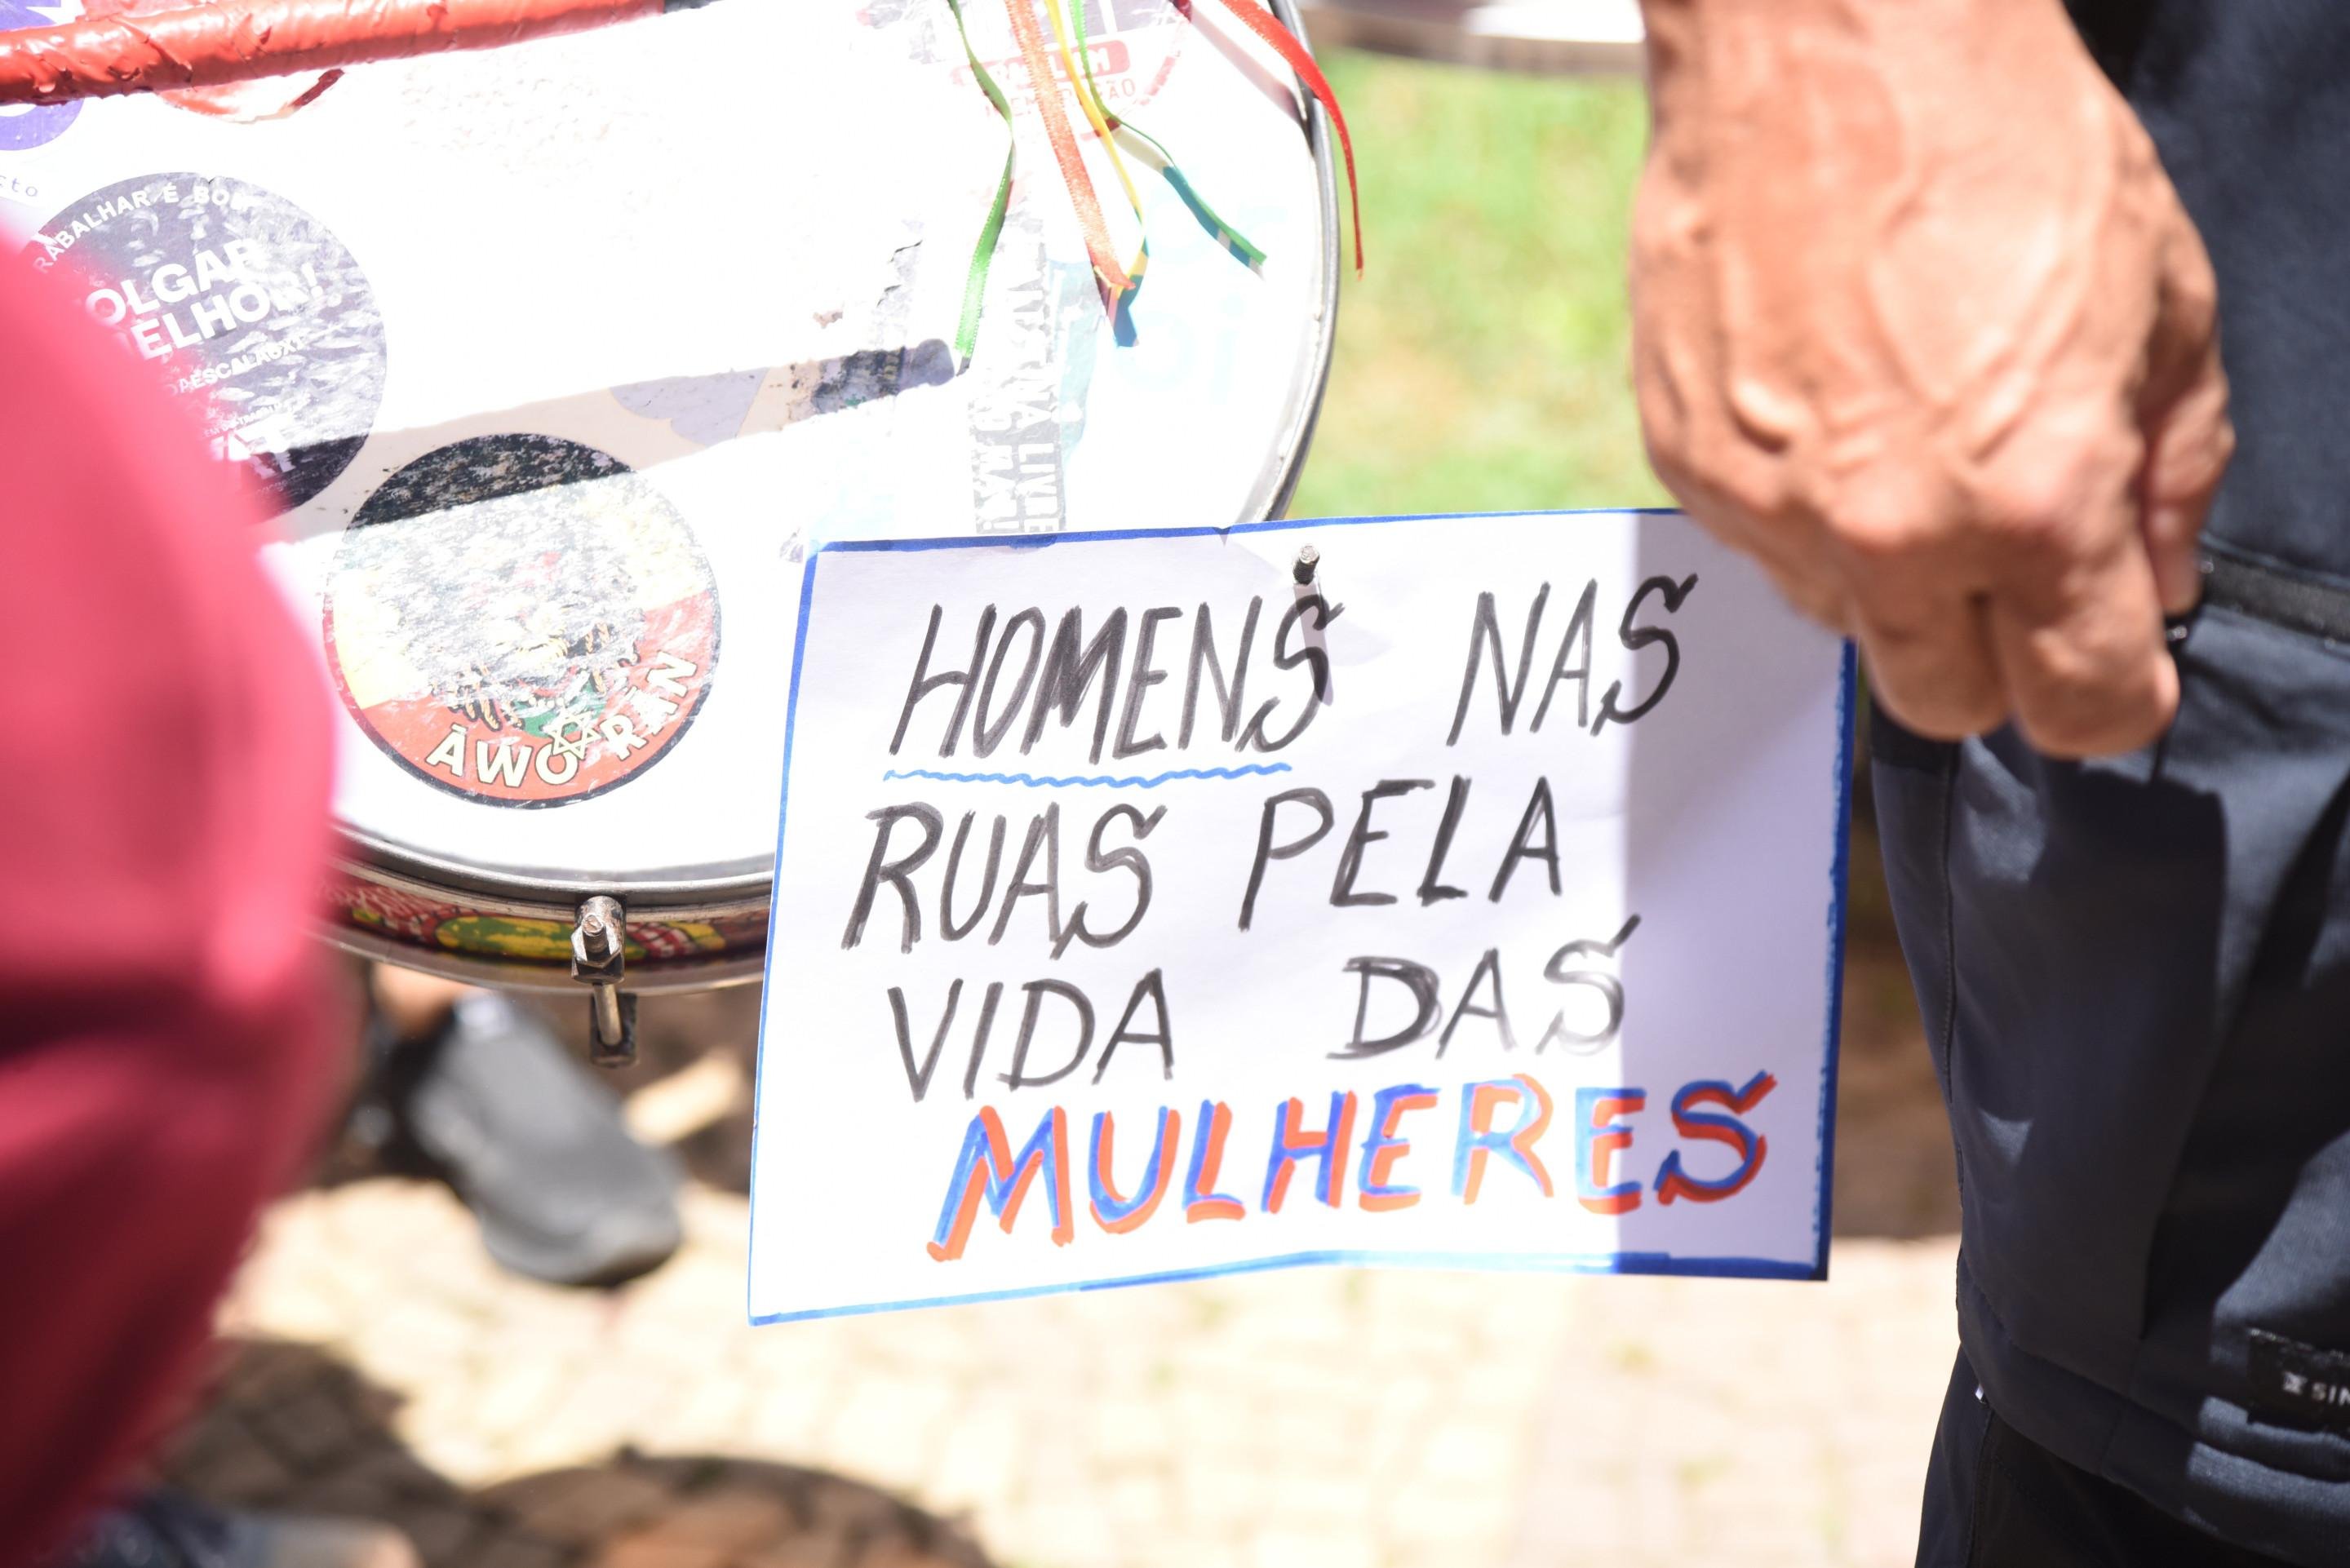 TRABALHAR É BOM
FOLGAR
MELHOR!
VAT
ÀWORÁN
HOMENS NAS
RUAS PELA
VIDA DAS
MULHERES